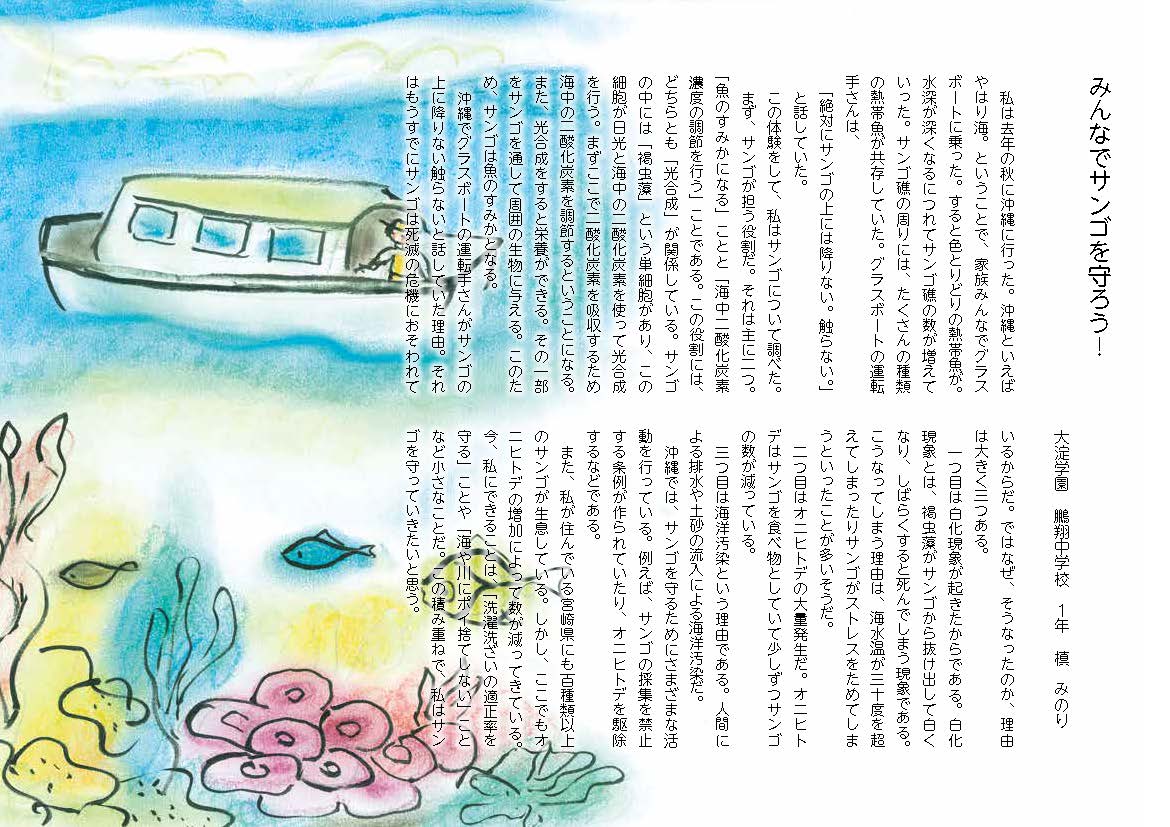 みんなでサンゴを守ろう！
大淀学園　鵬翔中学校　１年　槙　みのり
　私は去年の秋に沖縄に行った。沖縄といえば
やはり海。ということで、家族みんなでグラス
ボートに乗った。すると色とりどりの熱帯魚が。
水深が深くなるにつれてサンゴ礁の数が増えて
いった。サンゴ礁の周りには、たくさんの種類
の熱帯魚が共存していた。グラスボートの運転
手さんは、
「絶対にサンゴの上には降りない。触らない。」
と話していた。
　この体験をして、私はサンゴについて調べた。
　まず、サンゴが担う役割だ。それは主に二つ。
「魚のすみかになる」ことと「海中二酸化炭素
濃度の調節を行う」ことである。この役割には、
どちらとも「光合成」が関係している。サンゴ
の中には「褐虫藻」という単細胞があり、この
細胞が日光と海中の二酸化炭素を使って光合成
を行う。まずここで二酸化炭素を吸収するため
海中の二酸化炭素を調節するということになる。
また、光合成をすると栄養ができる。その一部
をサンゴを通して周囲の生物に与える。このた
め、サンゴは魚のすみかとなる。
　沖縄でグラスボートの運転手さんがサンゴの
上に降りない触らないと話していた理由。それ
はもうすでにサンゴは死滅の危機におそわれて
いるからだ。ではなぜ、そうなったのか、理由
は大きく三つある。
　一つ目は白化現象が起きたからである。白化
現象とは、褐虫藻がサンゴから抜け出して白く
なり、しばらくすると死んでしまう現象である。
こうなってしまう理由は、海水温が三十度を超
えてしまったりサンゴがストレスをためてしま
うといったことが多いそうだ。
　二つ目はオニヒトデの大量発生だ。オニヒト
デはサンゴを食べ物としていて少しずつサンゴ
の数が減っている。
　三つ目は海洋汚染という理由である。人間に
よる排水や土砂の流入による海洋汚染だ。
　沖縄では、サンゴを守るためにさまざまな活
動を行っている。例えば、サンゴの採集を禁止
する条例が作られていたり、オニヒトデを駆除
するなどである。
　また、私が住んでいる宮崎県にも百種類以上
のサンゴが生息している。しかし、ここでもオ
ニヒトデの増加によって数が減ってきている。
今、私にできることは、「洗濯洗ざいの適正率を
守る」ことや「海や川にポイ捨てしない」こと
など小さなことだ。この積み重ねで、私はサン
ゴを守っていきたいと思う。